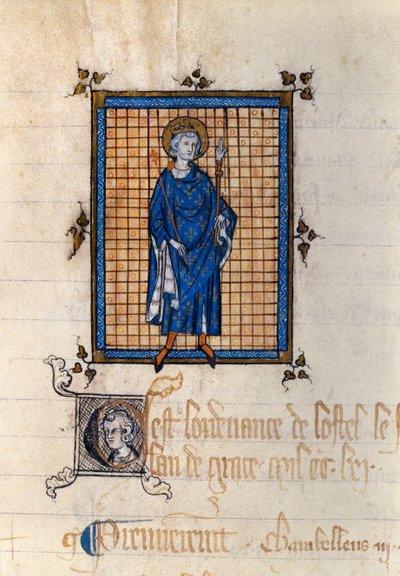 Cest lordenance de lostel le
lan de grace mil cc. lxi.
Premierement Chambellens iij